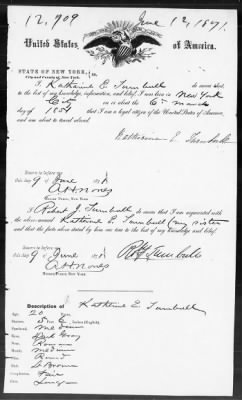 12,909
June 12, 1871.
United States of America.
STATE OF NEW YORK, ss.
City and County of New York.
I Katherine E. Turnbull do swear that
to the best of my knowledge, information, and belief, I was born in New York
City on or about the 6th March
of 185 that I am a legal citizen of the United States of America,
and am about to travel abroad
Katherine E. Turnbull
Sworn to before me
this day 9 June 187
Notary Public, New York.
I Robert J. Turnbull do swear that I am acquainted with
the above named Katherine E. Turnbull (my sister)
and that the facts above stated by him are true to the best of my knowledge and belief.
Sworn to before me
this day 9 June 187
Turnbull
Notary Public, New York.
Description of Katherine E. Turnbull
Age 20 years
Stature 5 Feet Inches (English)
Forehead Medium
Eyes Dark Gray
Nose Roman
Mouth Medium
Chin Round
Hair Brown
Complexion Fair
Face